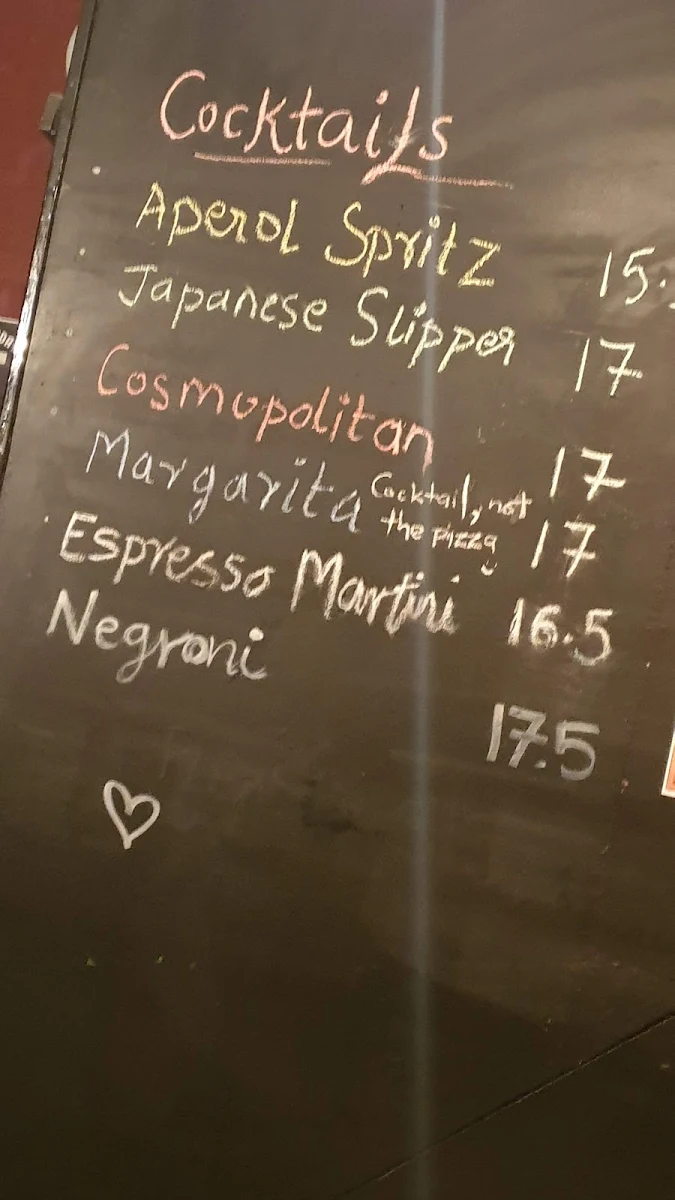 Cocktails
Aperol Spritz 15.
Japanese Slipper 17
Cosmopolitan 17
Margarita Cocktail, not the pizza 17
Espresso Martini 16.5
Negroni 17.5